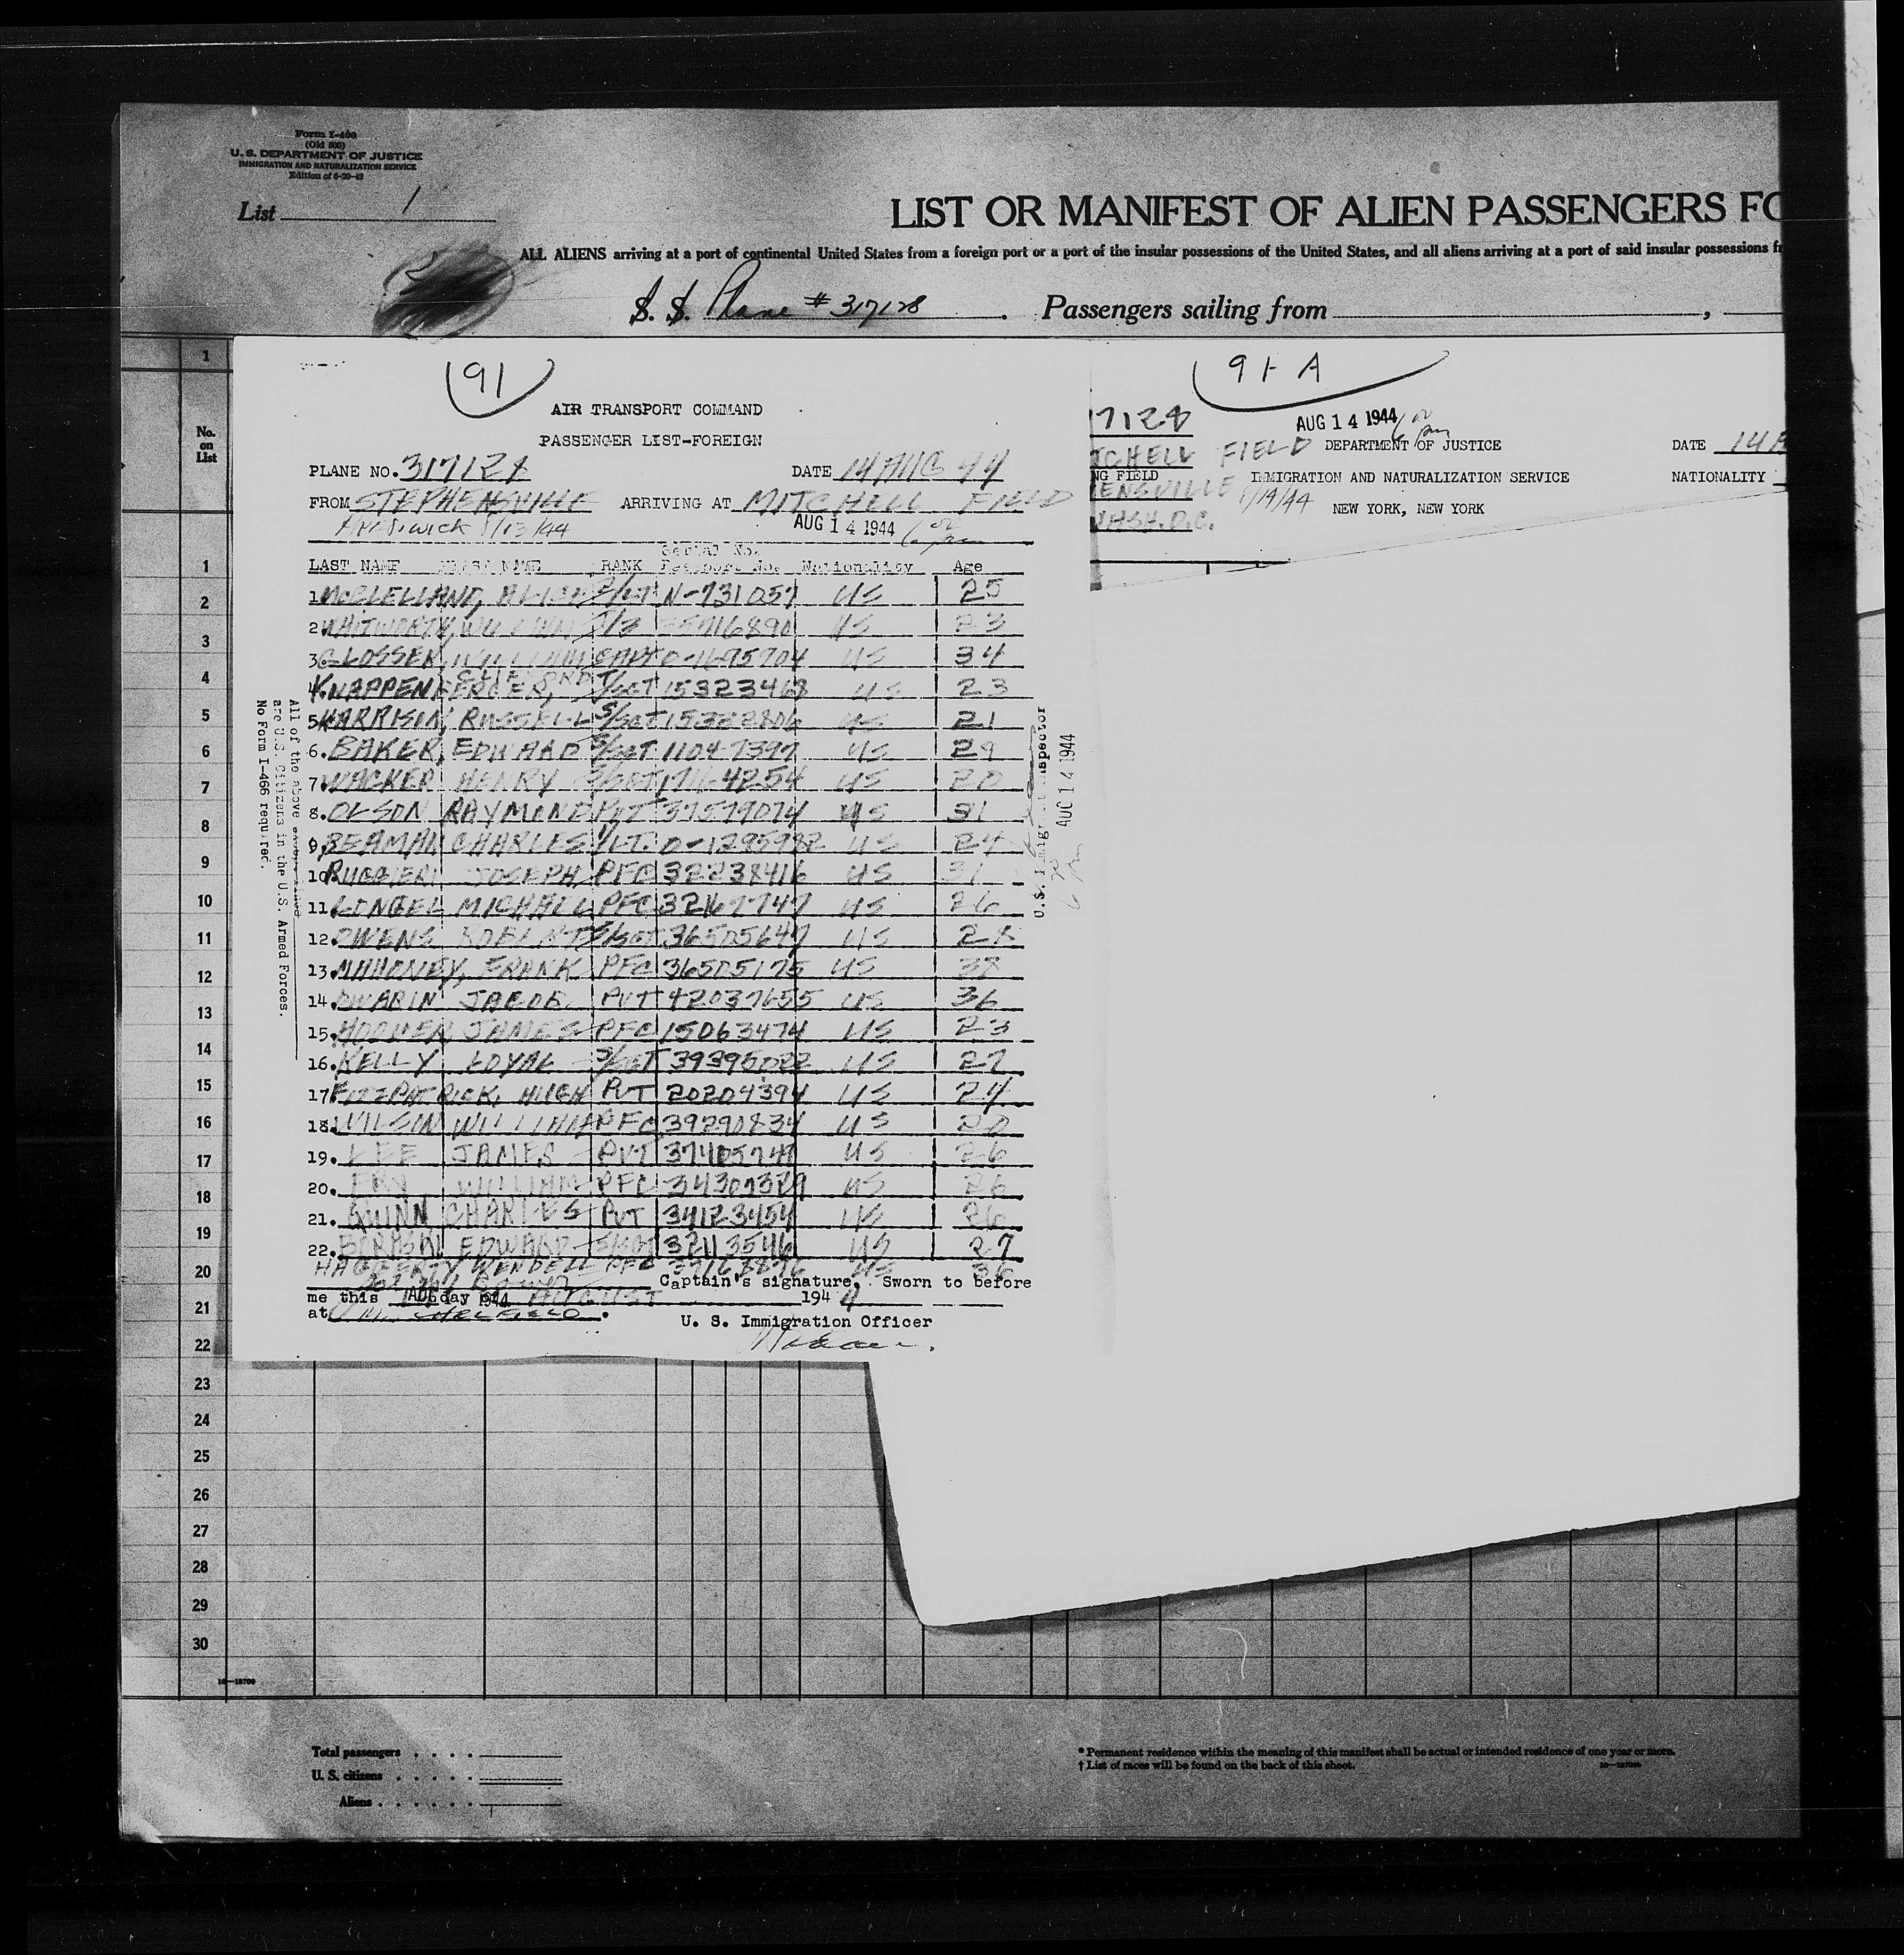 Form I-400
(Old 500)
U. S. DEPARTMENT OF JUSTICE
IMMIGRATION AND NATURALIZATION SERVICE
Edition of 6-20-42
List 1
LIST OR MANIFEST OF ALIEN PASSENGERS FO
ALL ALIENS arriving at a port of continental United States from a foreign port or a port of the insular possessions of the United States, and all aliens arriving at a port of said insular possessions fr
S. S. Plane # 317128 . Passengers sailing from ,
91
AIR TRANSPORT COMMAND
PASSENGER LIST-FOREIGN
PLANE NO. 317128 DATE 14 AUG 44
FROM STEPHENSVILLE ARRIVING AT MITCHELL FIELD
8/13/44 AUG 14 1944 6 pm
Serial No.
LAST NAME FIRST NAME RANK Passport No. Nationality Age
1. McCLELLAND, 2/LT N-731057 US 25
2. WHITWORTH, T/3 35716890 US 23
3. GLOSSER, WILLIAM CAPT O-1695904 US 34
4. KNAPPENBERGER, CLIFFORD T/SGT 15323468 US 23
5. HARRISON, RUSSELL S/SGT 15332806 US 21
6. BAKER, EDWARD S/SGT 11047397 US 29
7. WACKER HENRY S/SGT 17164254 US 20
8. OLSON RAYMOND PVT 37579074 US 31
9. BEAMAN CHARLES 1/LT. O-1295982 US 24
10. RUGGIERI JOSEPH PFC 32238416 US 31
11. MICHAEL PFC 32167747 US 26
12. OWENS ROBERT S/SGT 36505647 US 28
13. MAHONEY, FRANK PFC 36505175 US 38
14. JACOB PVT 42037655 US 36
15. JAMES PFC 15063474 US 23
16. KELLY LOYAL S/SGT 39395022 US 27
17. FITZPATRICK, HUGH PVT 20204394 US 24
18. WILSON WILLIAM PFC 39290834 US 20
19. LEE JAMES PVT 37405747 US 26
20. WILLIAM PFC 34307329 US 26
21. QUINN CHARLES PVT 34123454 US 26
22. EDWARD S/SGT 32113546 US 27
HAGGERTY WENDELL PFC 37168876 US 36
Captain's signature. Sworn to before
me this day of AUGUST 1944
at MITCHEL FIELD .
U. S. Immigration Officer
All of the above
are U.S. Citizens in the U.S. Armed Forces.
No Form I-466 required.
U.S. Immigrant Inspector
AUG 14 1944
6 pm
91-A
7128 AUG 14 1944 6 pm
TCHELL FIELD DEPARTMENT OF JUSTICE DATE 14 A
NG FIELD IMMIGRATION AND NATURALIZATION SERVICE NATIONALITY
ENSVILLE 8/14/44 NEW YORK, NEW YORK
WASH. D.C.
No.
on
List
1
1
2
3
4
5
6
7
8
9
10
11
12
13
14
15
16
17
18
19
20
21
22
23
24
25
26
27
28
29
30
Total passengers . . . .
U. S. citizens . . . . .
Aliens . . . . . .
* Permanent residence within the meaning of this manifest shall be actual or intended residence of one year or more.
† List of races will be found on the back of this sheet.